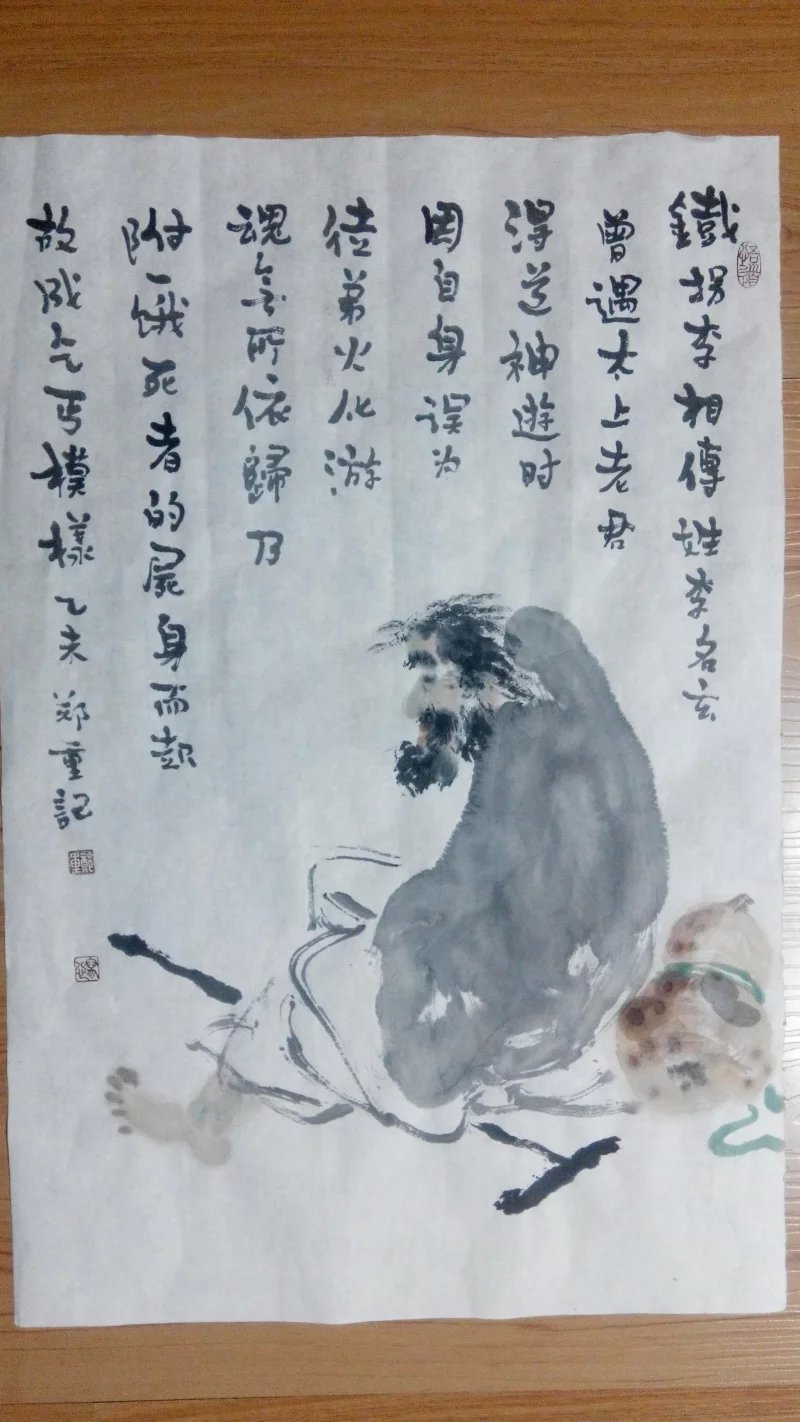 鐵拐李相傳姓李名玄
曾遇太上老君
得道神遊时
因自身误为
徒弟火化游
魂無所依歸乃
附一饿死者的屍身而起
故成乞丐模樣乙未郑重記